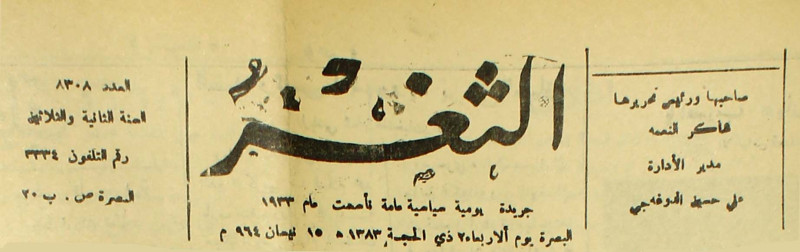 صاحبها ورئيس تحريرها
شاكر النعمه
مدير الأدارة
علي حسين الدوغه‌جي
الثغر
جريدة يومية سياسية عامة تأسست عام ١٩٣٣
البصرة يوم ألاربعاء ٢ ذي الحجة ١٣٨٣ ه ١٥ نيسان ٩٦٤ م
العدد ٨٣٠٨
السنة الثانية والثلاثين
رقم التلفون ٣٣٣٤
البصرة ص . ب ٢٠